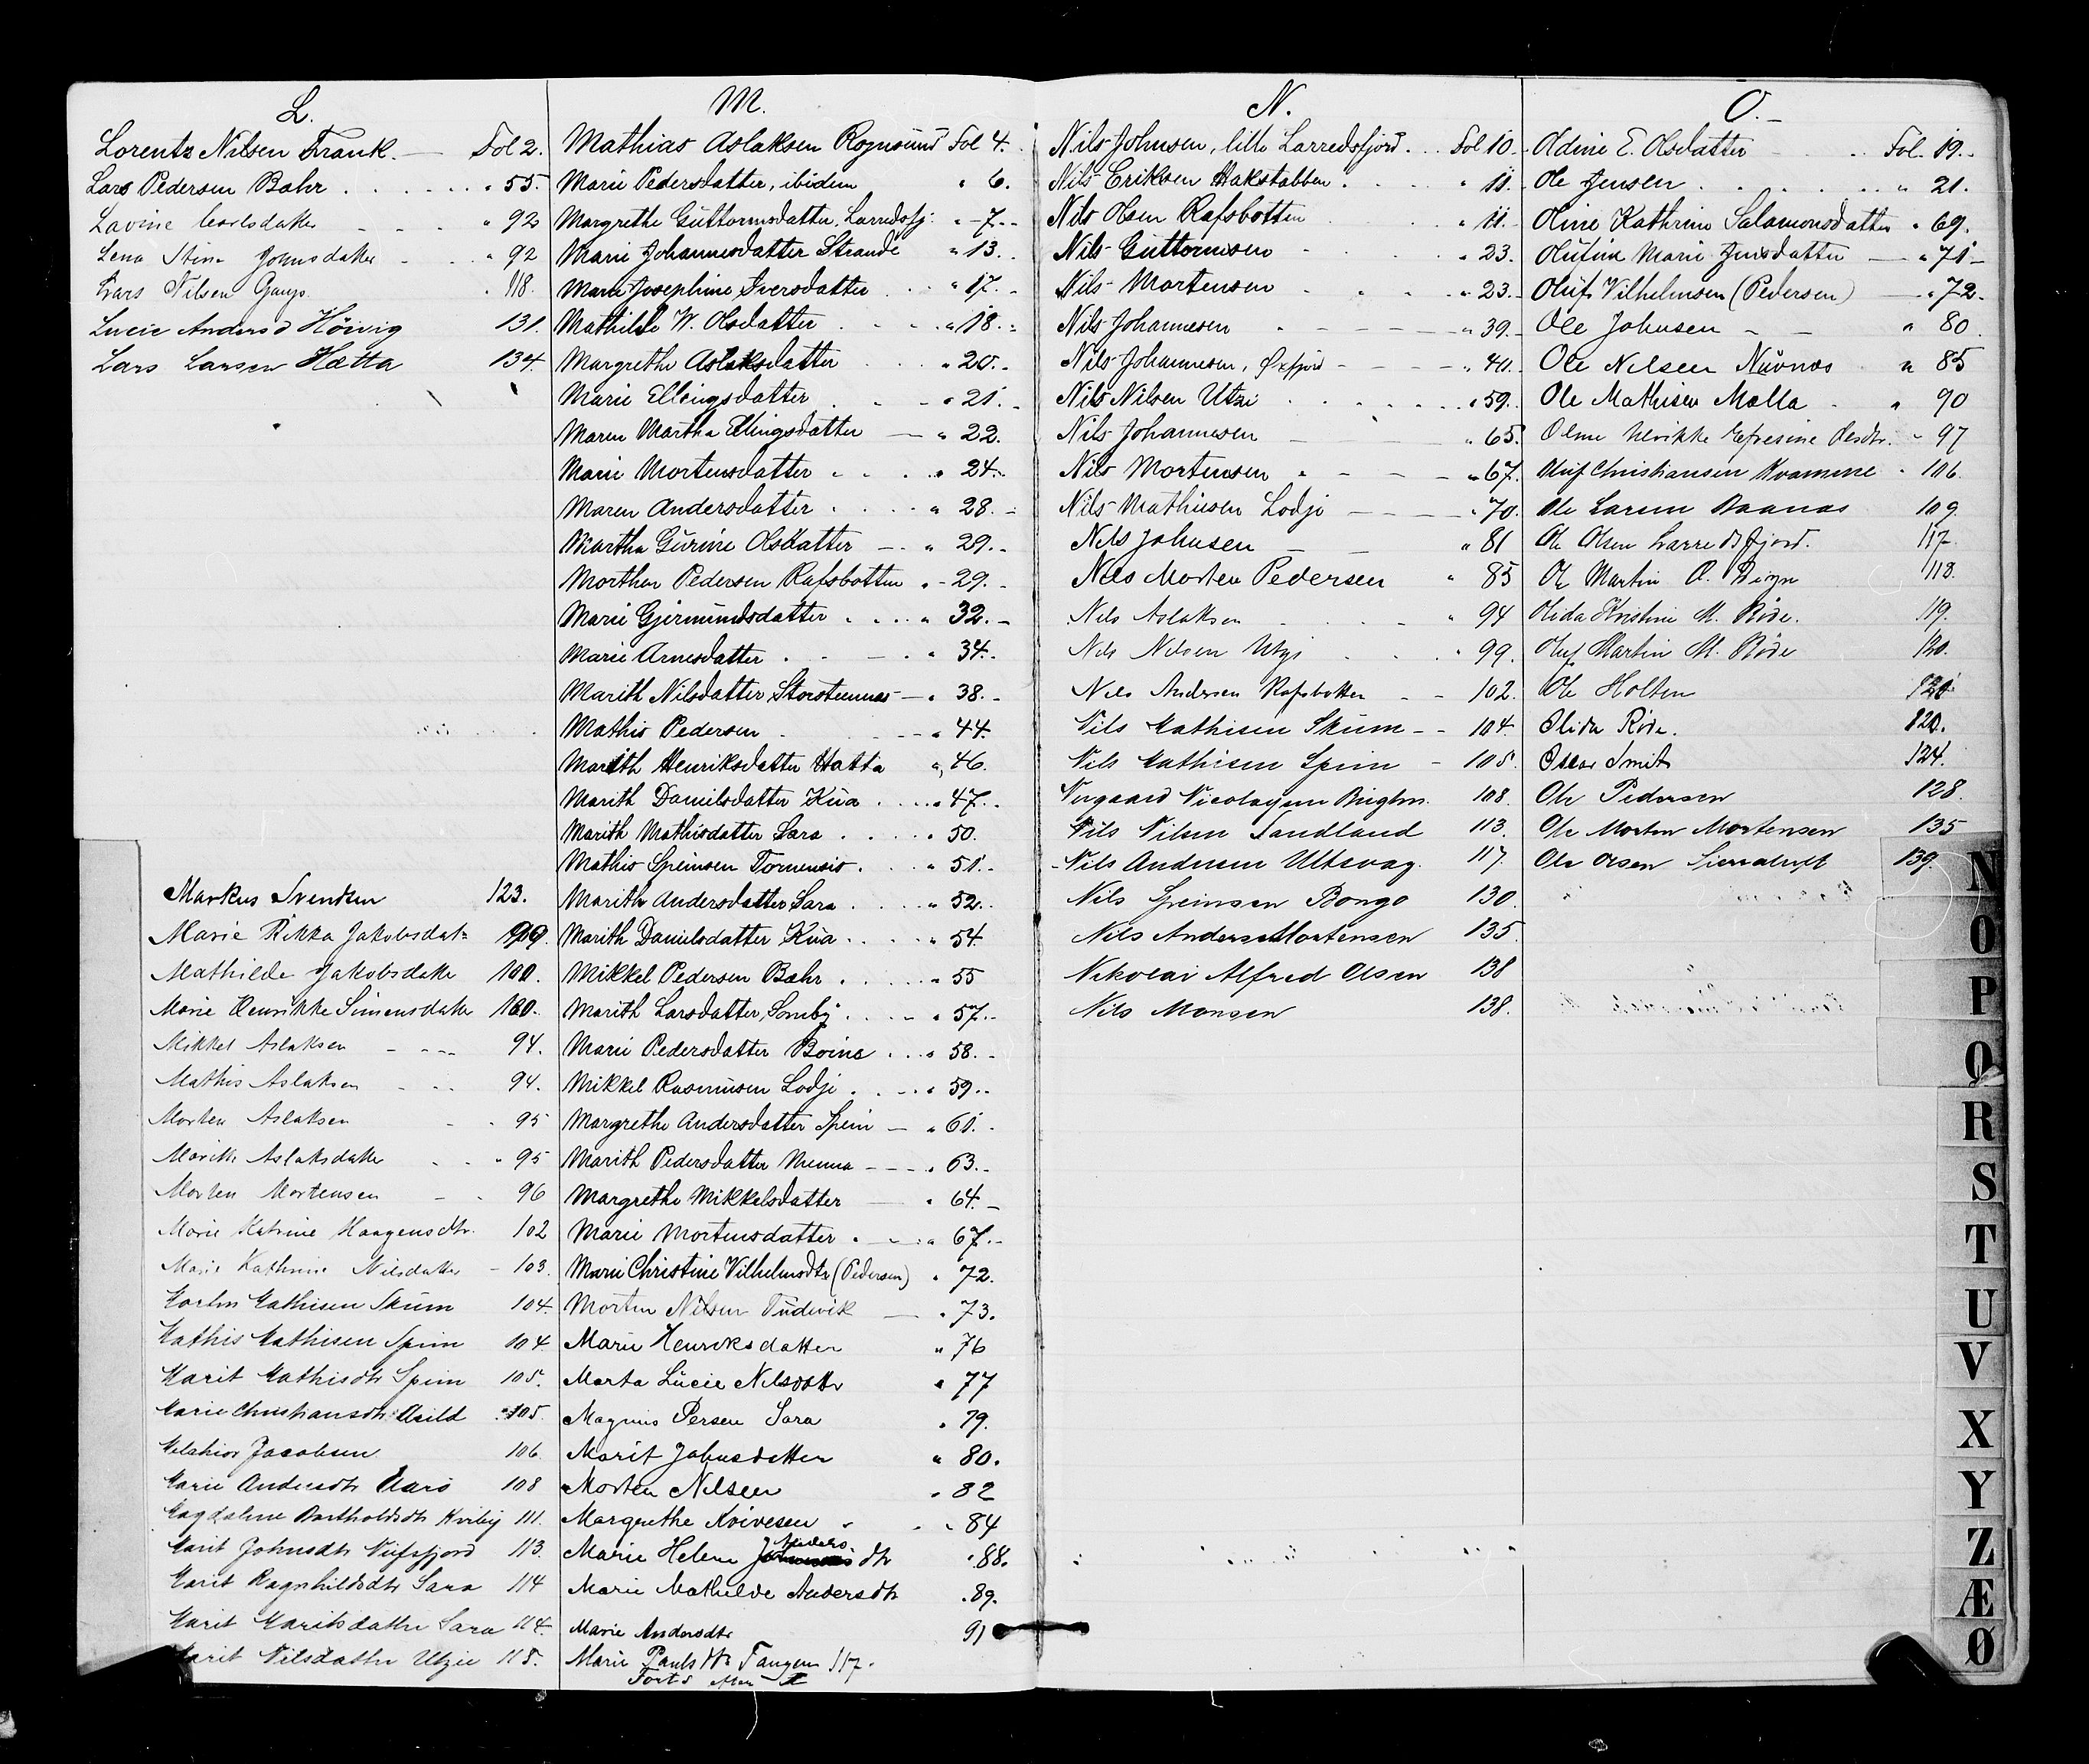 L.
Lorentz Nilsen Frank. Fol 2.
Lars Pedersen Bahr " 55.
Lavine Carlsdatter " 92
Lena Stina Johnsdatter " 92
Lars Nilsen Gaup. " 118.
Lucie Andersd Höivig 131.
Lars Larsen Hætta 134.
Markus Svendsen 123.
Marie Rikka Jakobsdatr
Mathilde Jakobsdatter 100.
Marie Henrikke Simensdatter 100.
Mikkel Aslaksen 94.
Mathis Aslaksen 94.
Morten Aslaksen 95
Marith Aslaksdatter " 95
Morten Mortensen 96
Marie Katrine Haagensdtr. 102
Marie Kathrine Nilsdatter 103
Morten Mathisen Skum 104.
Mathis Mathisen Spein 104
Marit Mathisdtr Spein 105.
Marie Christiansdtr 105.
Melchior Jacobsen 106
Marie Andersdtr 108
Magdalene Bartholdsdtr Kviby 111.
Marit Johnsdtr 113.
Marit Ragnhildsdtr Sara 114
Marit Maritsdatter Sara 114.
Marit Nilsdatter Utzie 115.
M.
Mathias Aslaksen Rognsund Fol 4.
Marie Pedersdatter, ibidem " 6.
Margrethe Guttormsdatter, Larredsfj: " 7.
Marie Johannesdatter Strande " 13.
Marie Josephine Iversdatter " 17.
Mathilde W. Olsdatter " 18.
Margrethe Aslaksdatter " 20.
Marie Ellingsdatter " 21.
Maren Martha Ellingsdatter " 22.
Marie Mortensdatter " 24.
Maren Andersdatter " 28.
Martha Gurine Olsdatter " 29.
Morthen Pedersen Rafsbotten " 29.
Marie Gjermundsdatter " 32.
Marie Arnesdatter " 34.
Marith Nilsdatter Storsteennæs " 38.
Mathis Pedersen " 44.
Marith Henriksdatter Hatta " 46.
Marith Danielsdatter Kua " 47.
Marith Mathisdatter Sara " 50.
Mathis Speinsen Tornensis " 51.
Marith Andersdatter Sara " 52.
Marith Danielsdatter Kua " 54
Mikkel Pedersen Bæhr " 55
Marith Larsdatter, Somby " 57.
Marie Pedersdatter Boine " 58.
Mikkel Rasmussen Lodje " 59.
Margrethe Andersdatter Spein " 61.
Marith Pedersdatter " 63.
Margrethe Mikkelsdatter " 64.
Marie Mortensdatter " 67.
Marie Christine Vilhelmsdtr (Pedersen) " 72.
Morten Nilsen Tudevik " 73.
Marie Henriksdatter " 76
Marta Lucie Nilsdatr " 77
Magnus Persen Sara " 79.
Marit Johnsdatter " 80.
Morten Nilsen " 82
Margrethe Kvivesen " 84
Marie Helene Anders dtr " 88.
Marie Mathilde Andersdtr " 89.
Marie Andersdtr 91
Marie Paulsdtr Tangen 117.
Forts efter L
N.
Nils Johnsen, lille Larredsfjord. Fol 10.
Nils Eriksen Hakstabben " 11.
Nils Olsen Rafsbotten " 11.
Nils Guttormsen " 23.
Nils Mortensen " 23.
Nils Johannesen " 39.
Nils Johannesen, Øxfjord " 40.
Nils Nilsen Utzi " 59.
Nils Johannesen " 65.
Nils Mortensen " 67.
Nils Mathiesen Lodje " 70.
Nils Johnsen " 81
Nils Morten Pedersen " 85
Nils Aslaksen " 94
Nils Nilsen Utzi " 99.
Nils Andersen Rafsbotten 102.
Nils Mathisen Skum 104.
Nils Mathisen Spein 105.
Nergaard Nicolaysen 108.
Nils Nilsen Sandland 113.
Nils Andersen Ultsvag. 117.
Nils Speinsen Bongo 130.
Nils Anders Mortensen 135.
Nikolai Alfred Olsen 138
Nils Monsen 138.
O.
Odine E. Olsdatter Fol. 19.
Ole Jensen " 21.
Oline Kathrine Salamonsdatter " 69.
Olufine Marie Jensdatter " 71
Oluf Vilhelmsen (Pedersen) " 72.
Ole Johnsen " 80.
Ole Nilsen Nuvnæs " 85
Ole Mathisen Malla " 90
Oline Ulrikke Efresine Olesdtr. " 97
Oluf Christiansen Kvamme " 106.
Ole Larsen 109.
Ole Olsen Larredsfjord. 117.
Ole Martin O. 118.
Olida Kristine M. Röde. 119.
Oluf Martin M. Röde 120.
Ole Holten
Olida Röde.
Oscar Smit 124.
Ole Pedersen 128.
Ole Morten Mortensen 135
Ole Olsen 139.
N
O
P
Q
R
S
T
U
V
X
Y
Z
Æ
Ø